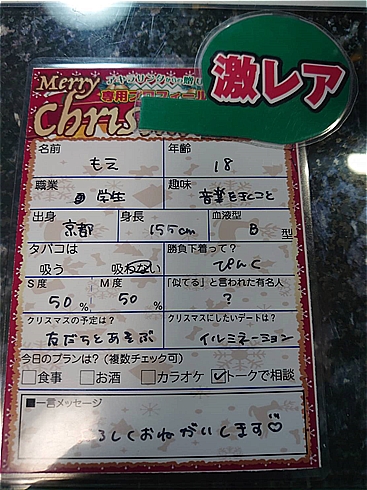 激レア
Merry
専用プロフィール
Chris
名前 もえ 年齢 18
職業 学生 趣味 音楽をきくこと
出身 京都 身長 155cm 血液型 B 型
タバコは 吸う 吸わない 勝負下着って? ぴんく
S度 50 % M度 50 % 「似てる」と言われた有名人 ?
クリスマスの予定は? 友だちとあそぶ クリスマスにしたいデートは? イルミネーション
今日のプランは?(複数チェック可)
食事 お酒 カラオケ トークで相談
■一言メッセージ
ろしくおねがいします